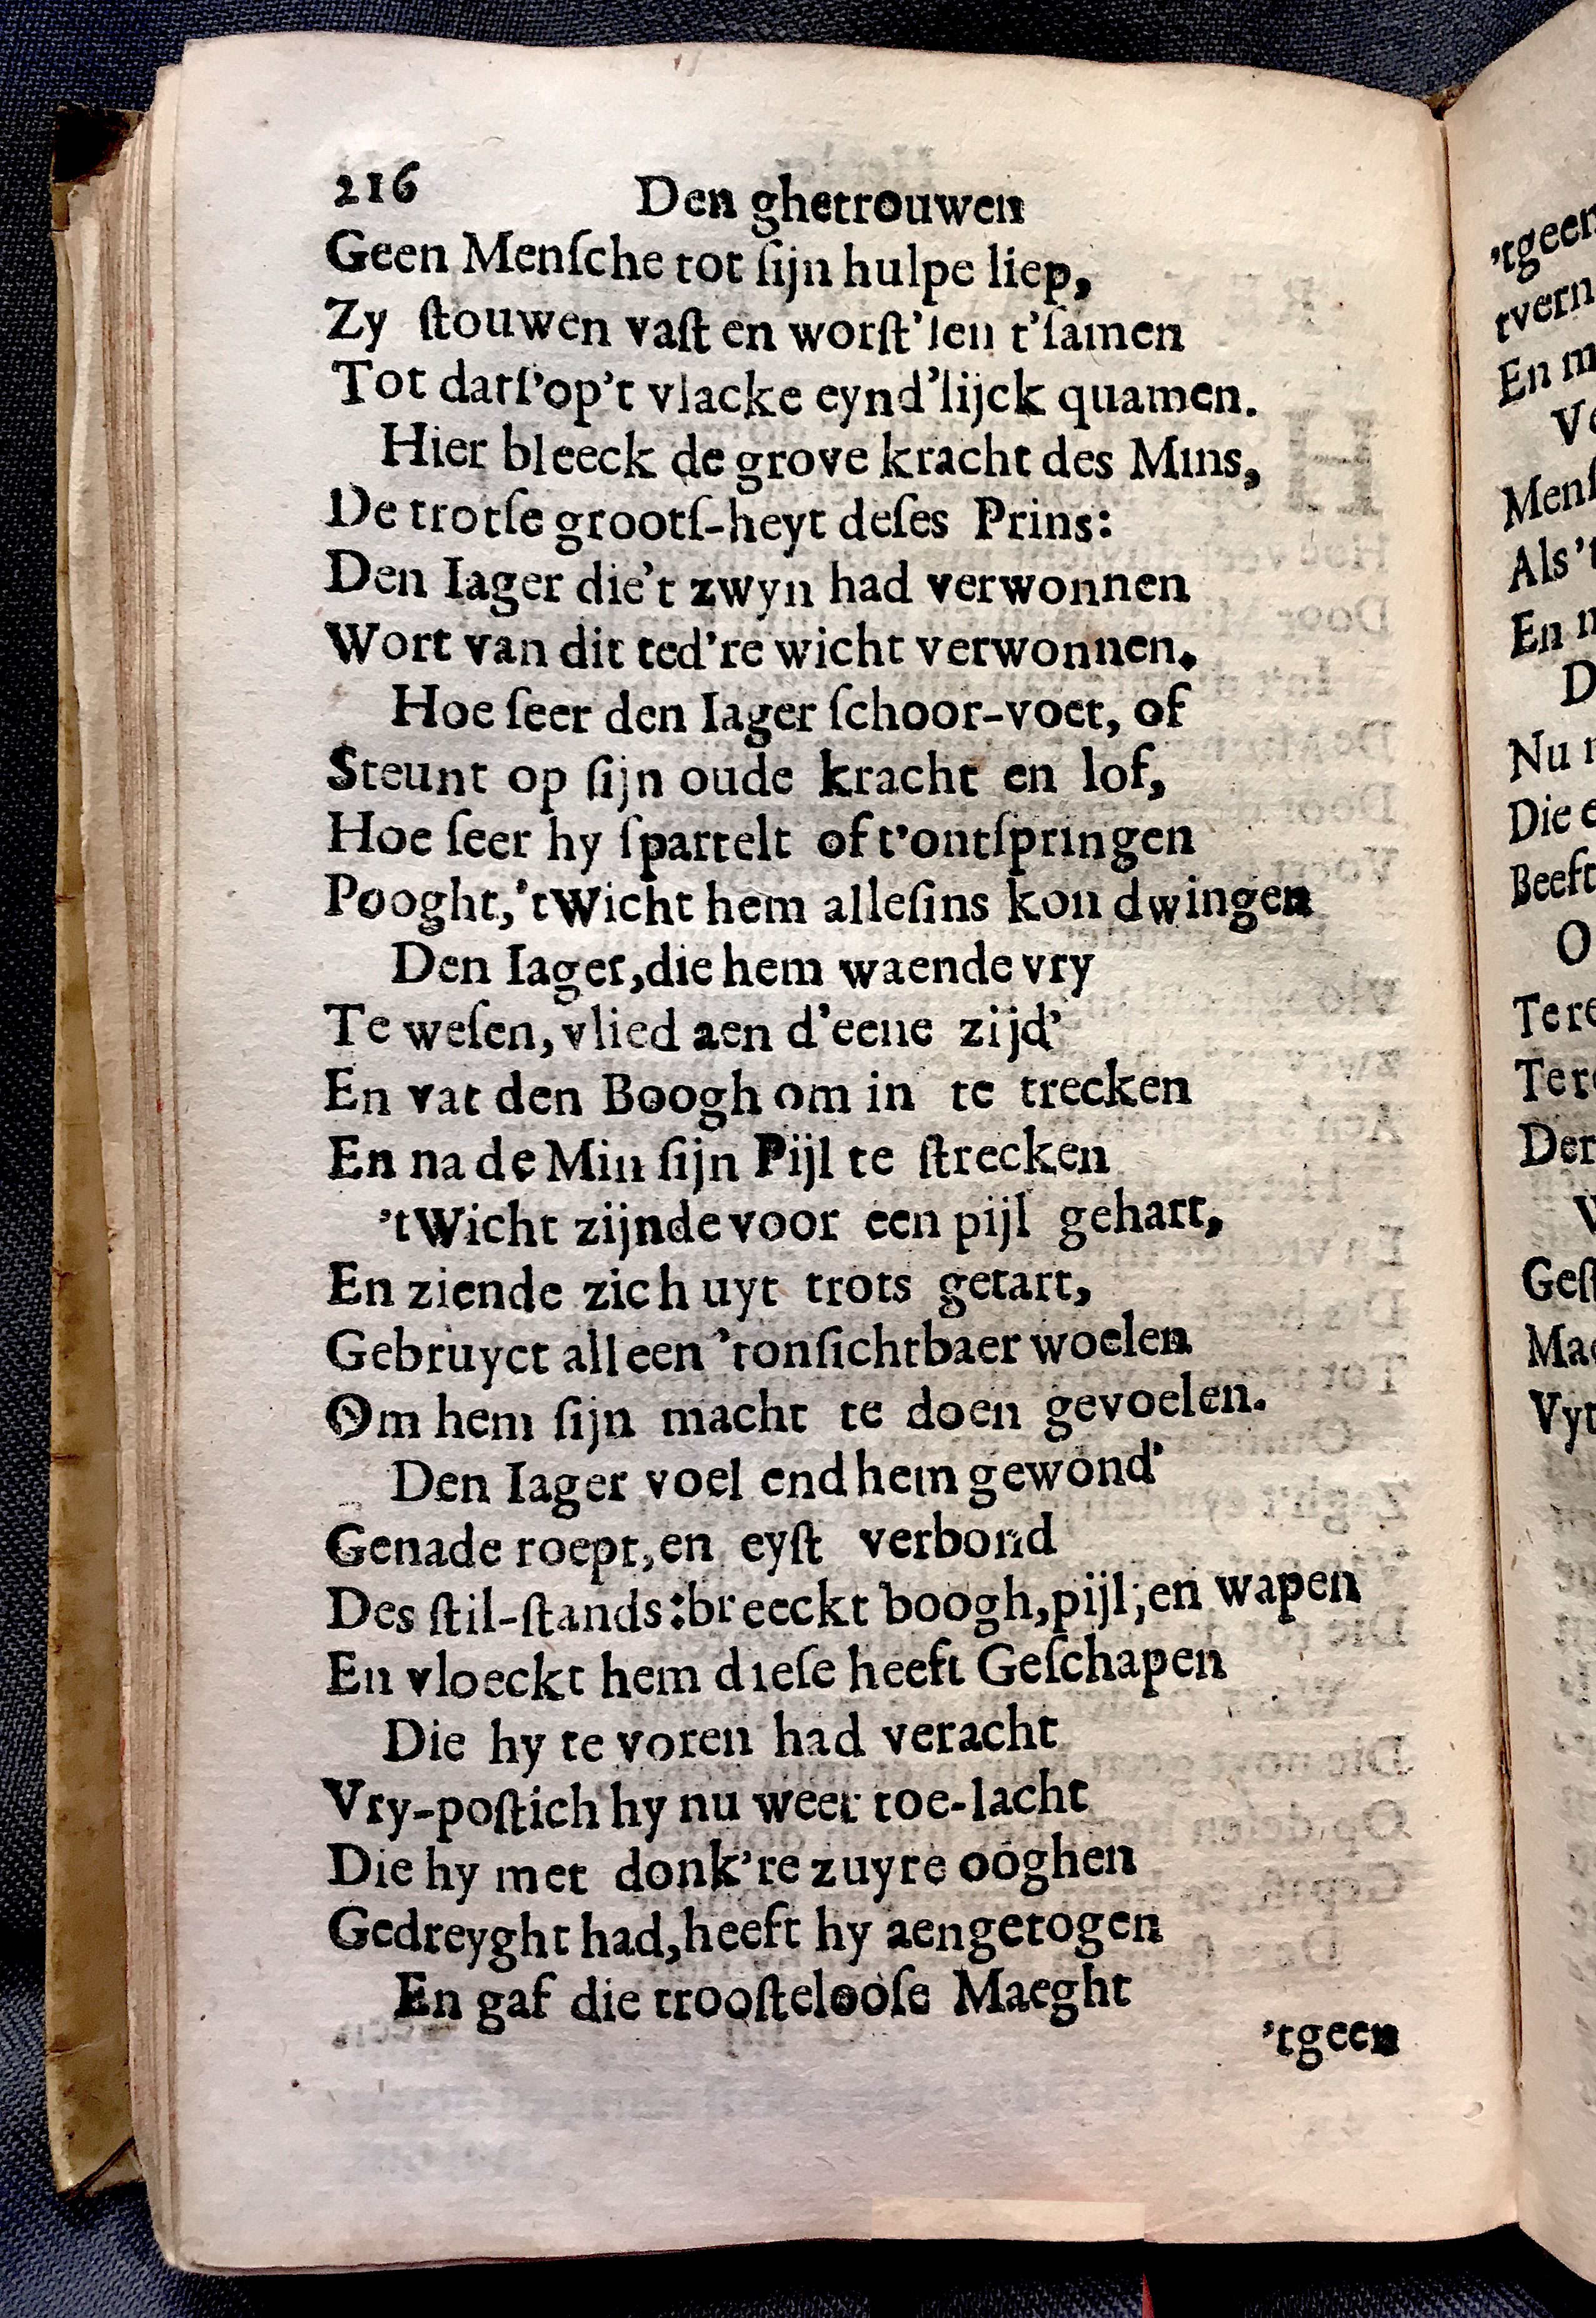 216 Den ghetrouwen
Geen Menſche tot ſijn hulpe liep,
Zy ſtouwen vaſt en worſt'len t'ſamen
Tot datſ'op't vlacke eynd'lijck quamen.
Hier bleeck de grove kracht des Mins,
De trotſe grootſ-heyt deſes Prins:
Den Iager die't zwyn had verwonnen
Wort van dit ted're wicht verwonnen.
Hoe ſeer den Iager ſchoor-voet, of
Steunt op ſijn oude kracht en lof,
Hoe ſeer hy ſpartelt of t'ontſpringen
Pooght,'t Wicht hem alleſins kon dwingen
Den Iager, die hem waende vry
Te weſen, vlied aen d'eene zijd'
En vat den Boogh om in te trecken
En na de Min ſijn Pijl te ſtrecken
't Wicht zijnde voor een pijl gehart,
En ziende zich uyt trots getart,
Gebruyct alleen 'tonſichtbaer woelen
Om hem ſijn macht te doen gevoelen.
Den Iager voel end hem gewond'
Genade roept, en eyſt verbond
Des ſtil-ſtands: breeckt boogh, pijl, en wapen
En vloeckt hem dieſe heeft Geſchapen
Die hy te voren had veracht
Vry-poſtich hy nu weer toe-lacht
Die hy met donk're zuyre ooghen
Gedreyght had, heeft hy aengetogen
En gaf die trooſtelooſe Maeght
'tgeen
'tgeen
En
Als
En
Nu
Die
O
Der